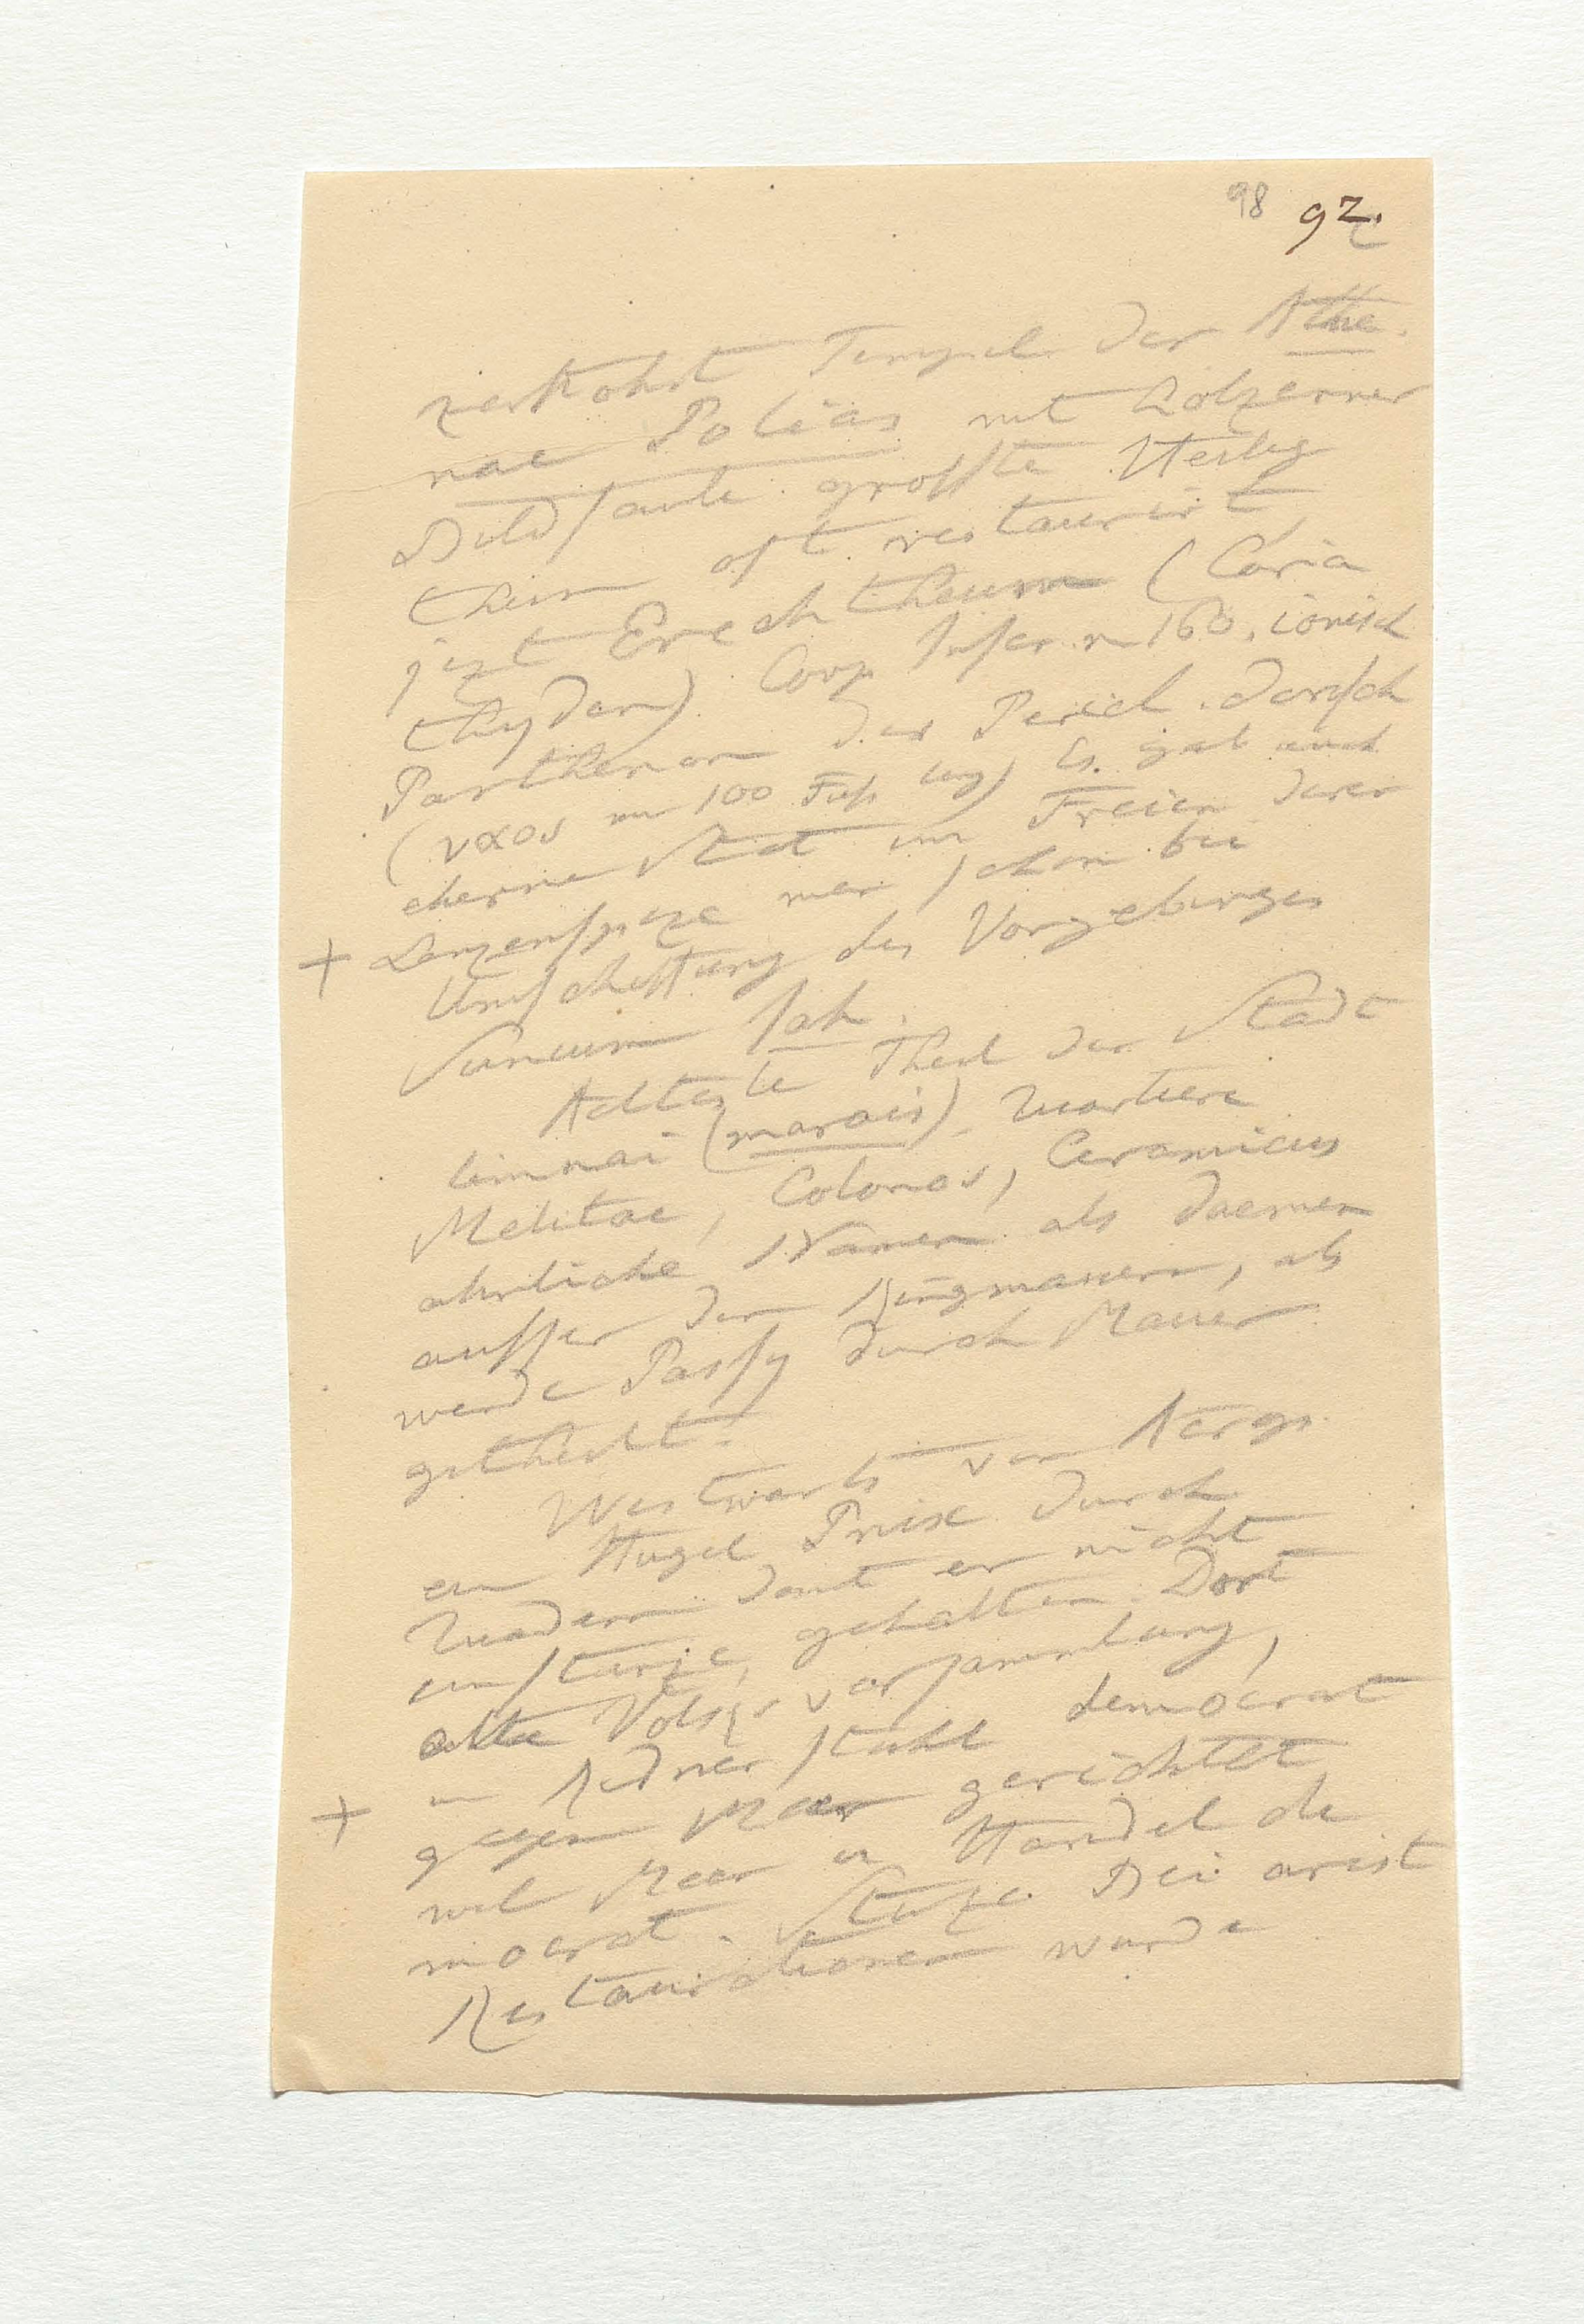 98 92.
zerstohrt Tempel der Athe
nae Polias mit holzerner
Bildsaule grosste Heilig
thum oft restaurirt
jezt Erechtheum (Caria
thyden) Corp Inscr. n 160. ionisch
Parthenon des Pericl. dorisch
(ναος nur 100 Fuss lang) Es gab auch
eherne Stat im Freien deren
+ Lanzenspize man schon bei
Umschiffung des Vorgebirges
Sunium sah.
Aelteste Theil der Stadt
limnai (marais). Quartiere
Melitae, Colonos, Ceramicus
ahnliche Namen als Daemen
ausser den Ringmauern, als
werde Passy durch Mauer
getheilt.
Westwarts von Aerop.
ein Hugel Pnix durch
Quadern damit er nicht
einsturze, gehalten. Dort
alte Volksversammlung,
+ Rednerstuhl democrat
gegen Meer gerichtet
weil Meer u Handel de
mocrat. Stuze. Bei arist
Restaurationen wurde